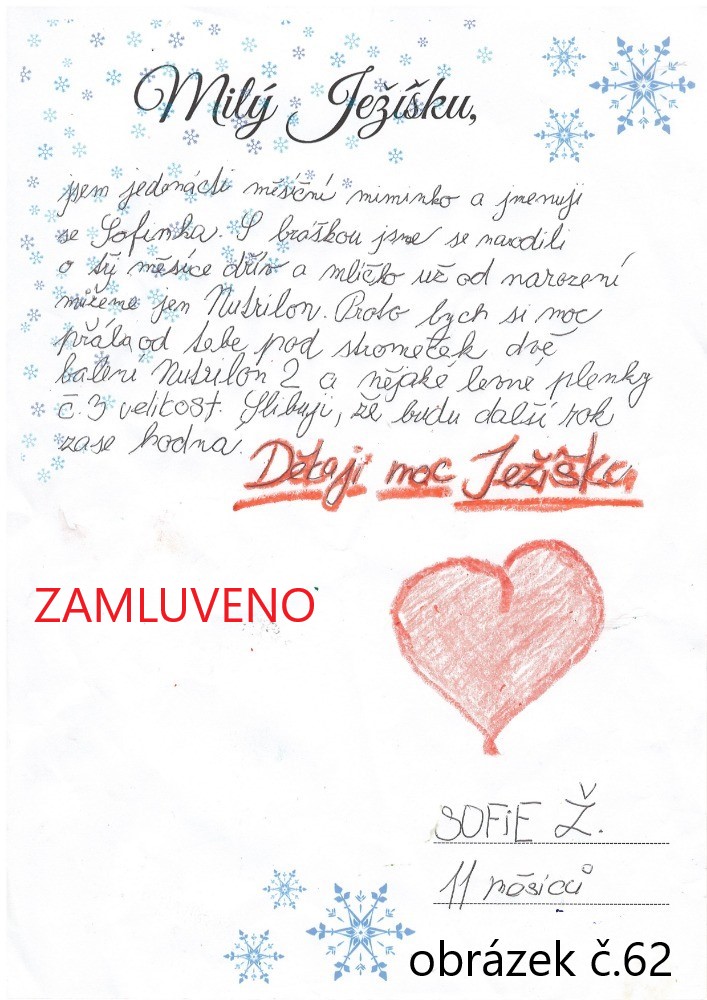 Milý Ježíšku,
jsem jedenácti měsíční miminko a jmenuji
se Sofinka. S bráškou jsme se narodili
o tý měsíce dřív a mlíčko už od narození
můžeme jen Nutrilon. Proto bych si moc
přála od tebe pod stromeček dvě
balení Nutrilon 2 a nějaké levné plenky
č.3 velikost. Slibuji, že budu další rok
zase hodná.
Děkaji moc Ježíšku
ZAMLUVENO
SOFiE Ž.
11 měsíců
obrázek č.62